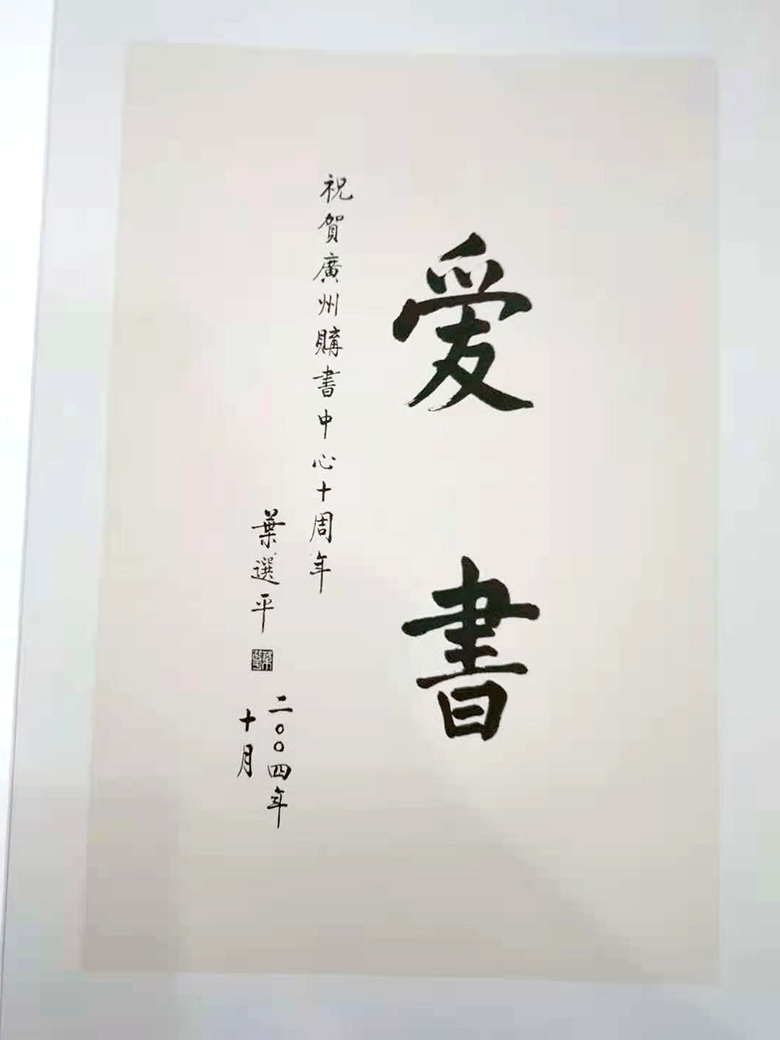 爱書
祝賀廣州購書中心十周年
葉選平
二〇〇四年
十月